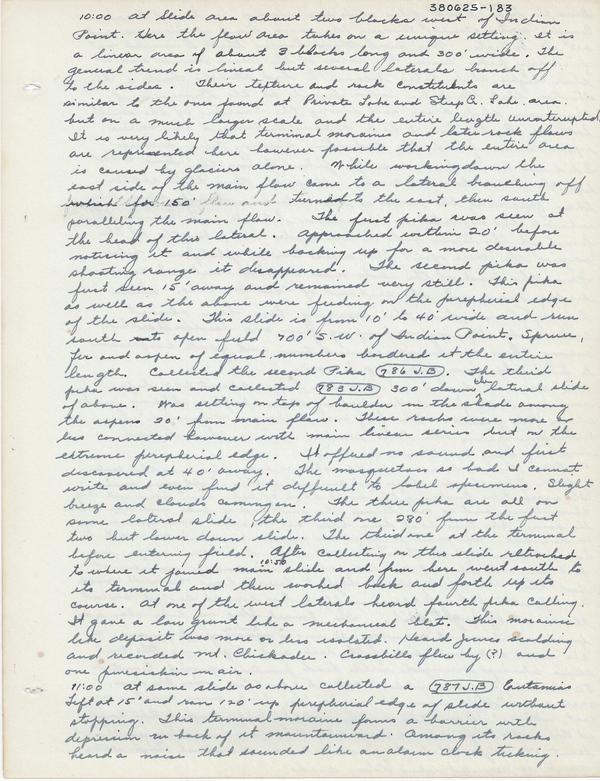 380625-183
10:00 at Slide area about two blocks west of Indian
Point. Here the flow area takes on a unique setting. It is
a linear area of about 3 blocks long and 300' wide. The
general trend is lineal but several laterals branch off
to the sides. Their texture and rock constituents are
similar to the ones found at Private Lake and Steep Cr. Lake area.
but on a much larger scale and the entire length uninterrupted.
It is very likely that terminal moraines and later rock flows
are represented here however possible that the entire area
is caused by glaciers alone. While working down the
east side of the main flow came to a lateral branching off
which for 150' turned to the east, then south
paralleling the main flow. The first pika was seen at
the head of this lateral. Approached within 20' before
noticing it and while backing up for a more desirable
shooting range it disappeared. The second pika was
first seen 15' away and remained very still. This pika
as well as the above were feeding on the peripherial edge
of the slide. This slide is from 10' to 40' wide and run
south open field 700' S.W. of Indian Point. Spruce,
Fer and aspen of equal numbers bordered it the entire
length. Collected the second Pika (786 J.B). The third
pika was seen and collected (783 J.B) 300' down lateral slide
of above. Was setting on top of boulder in the shade among
the aspens 20' from main flow. These rocks were more or
less connected however with main linear series but on the
extreme peripherial edge. It offered no sound and first
discovered at 40' away. The mosquetoes so bad I cannot
write and even find it difficult to label specimens. Slight
breeze and clouds coming in. The three pika are all on
same lateral slide, the third one 280' from the first
two but lower down slide. The third one at the terminal
before entering field. After collecting on this slide retracked
10:50
to where it joined main slide and from here went south to
its terminal and then worked back and forth up its
course. At one of the west laterals heard fourth pika calling.
It gave a low grunt like a mechanical bleat. This moraine
like deposit was more or less isolated. Heard Juncos scolding
and recorded Mt. Chickadee. Crossbills flew by (?) and
one pinesiskin in air.
11:00 at same slide as above collected a (787 J.B) Eutamias
Left at 15' and ran 120' up peripherial edge of slide without
stopping. This terminal moraine forms a barrier with
depression in back of it mountainward. Among its rocks
heard a noise that sounded like an alarm clock ticking.